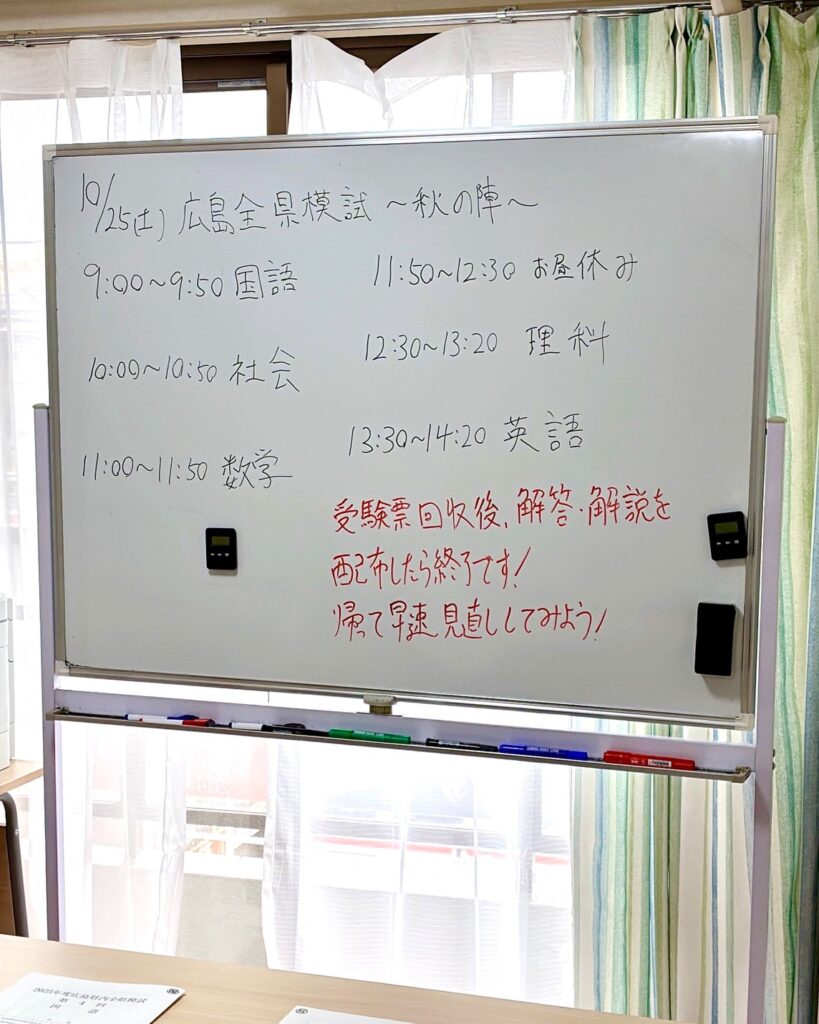 10/25(土) 広島全県模試 〜秋の陣〜
9:00〜9:50 国語
10:00〜10:50 社会
11:00〜11:50 数学
11:50〜12:30 お昼休み
12:30〜13:20 理科
13:30〜14:20 英語
受験票回収後、解答・解説を
配布したら終了です!
帰って早速見直ししてみよう!
2025年度広島県内全県模試
第4回
国語